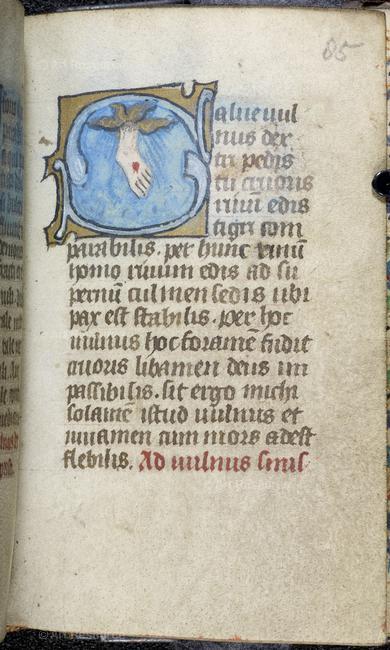 85
Salue uul
nus dex
tri pedis
tu cruoris
riuū edis
tigri com
parabilis. per hunc riuū
homo riuum edis ad su
pernū culmen sedis ubi
pax est stabilis. per hoc
uulnus hoc foramē fudit
cruoris libamen deus im
passibilis. sit ergo michi
solamē istud uulnus et
iuuamen cum mors adest
flebilis. Ad uulnus sinis